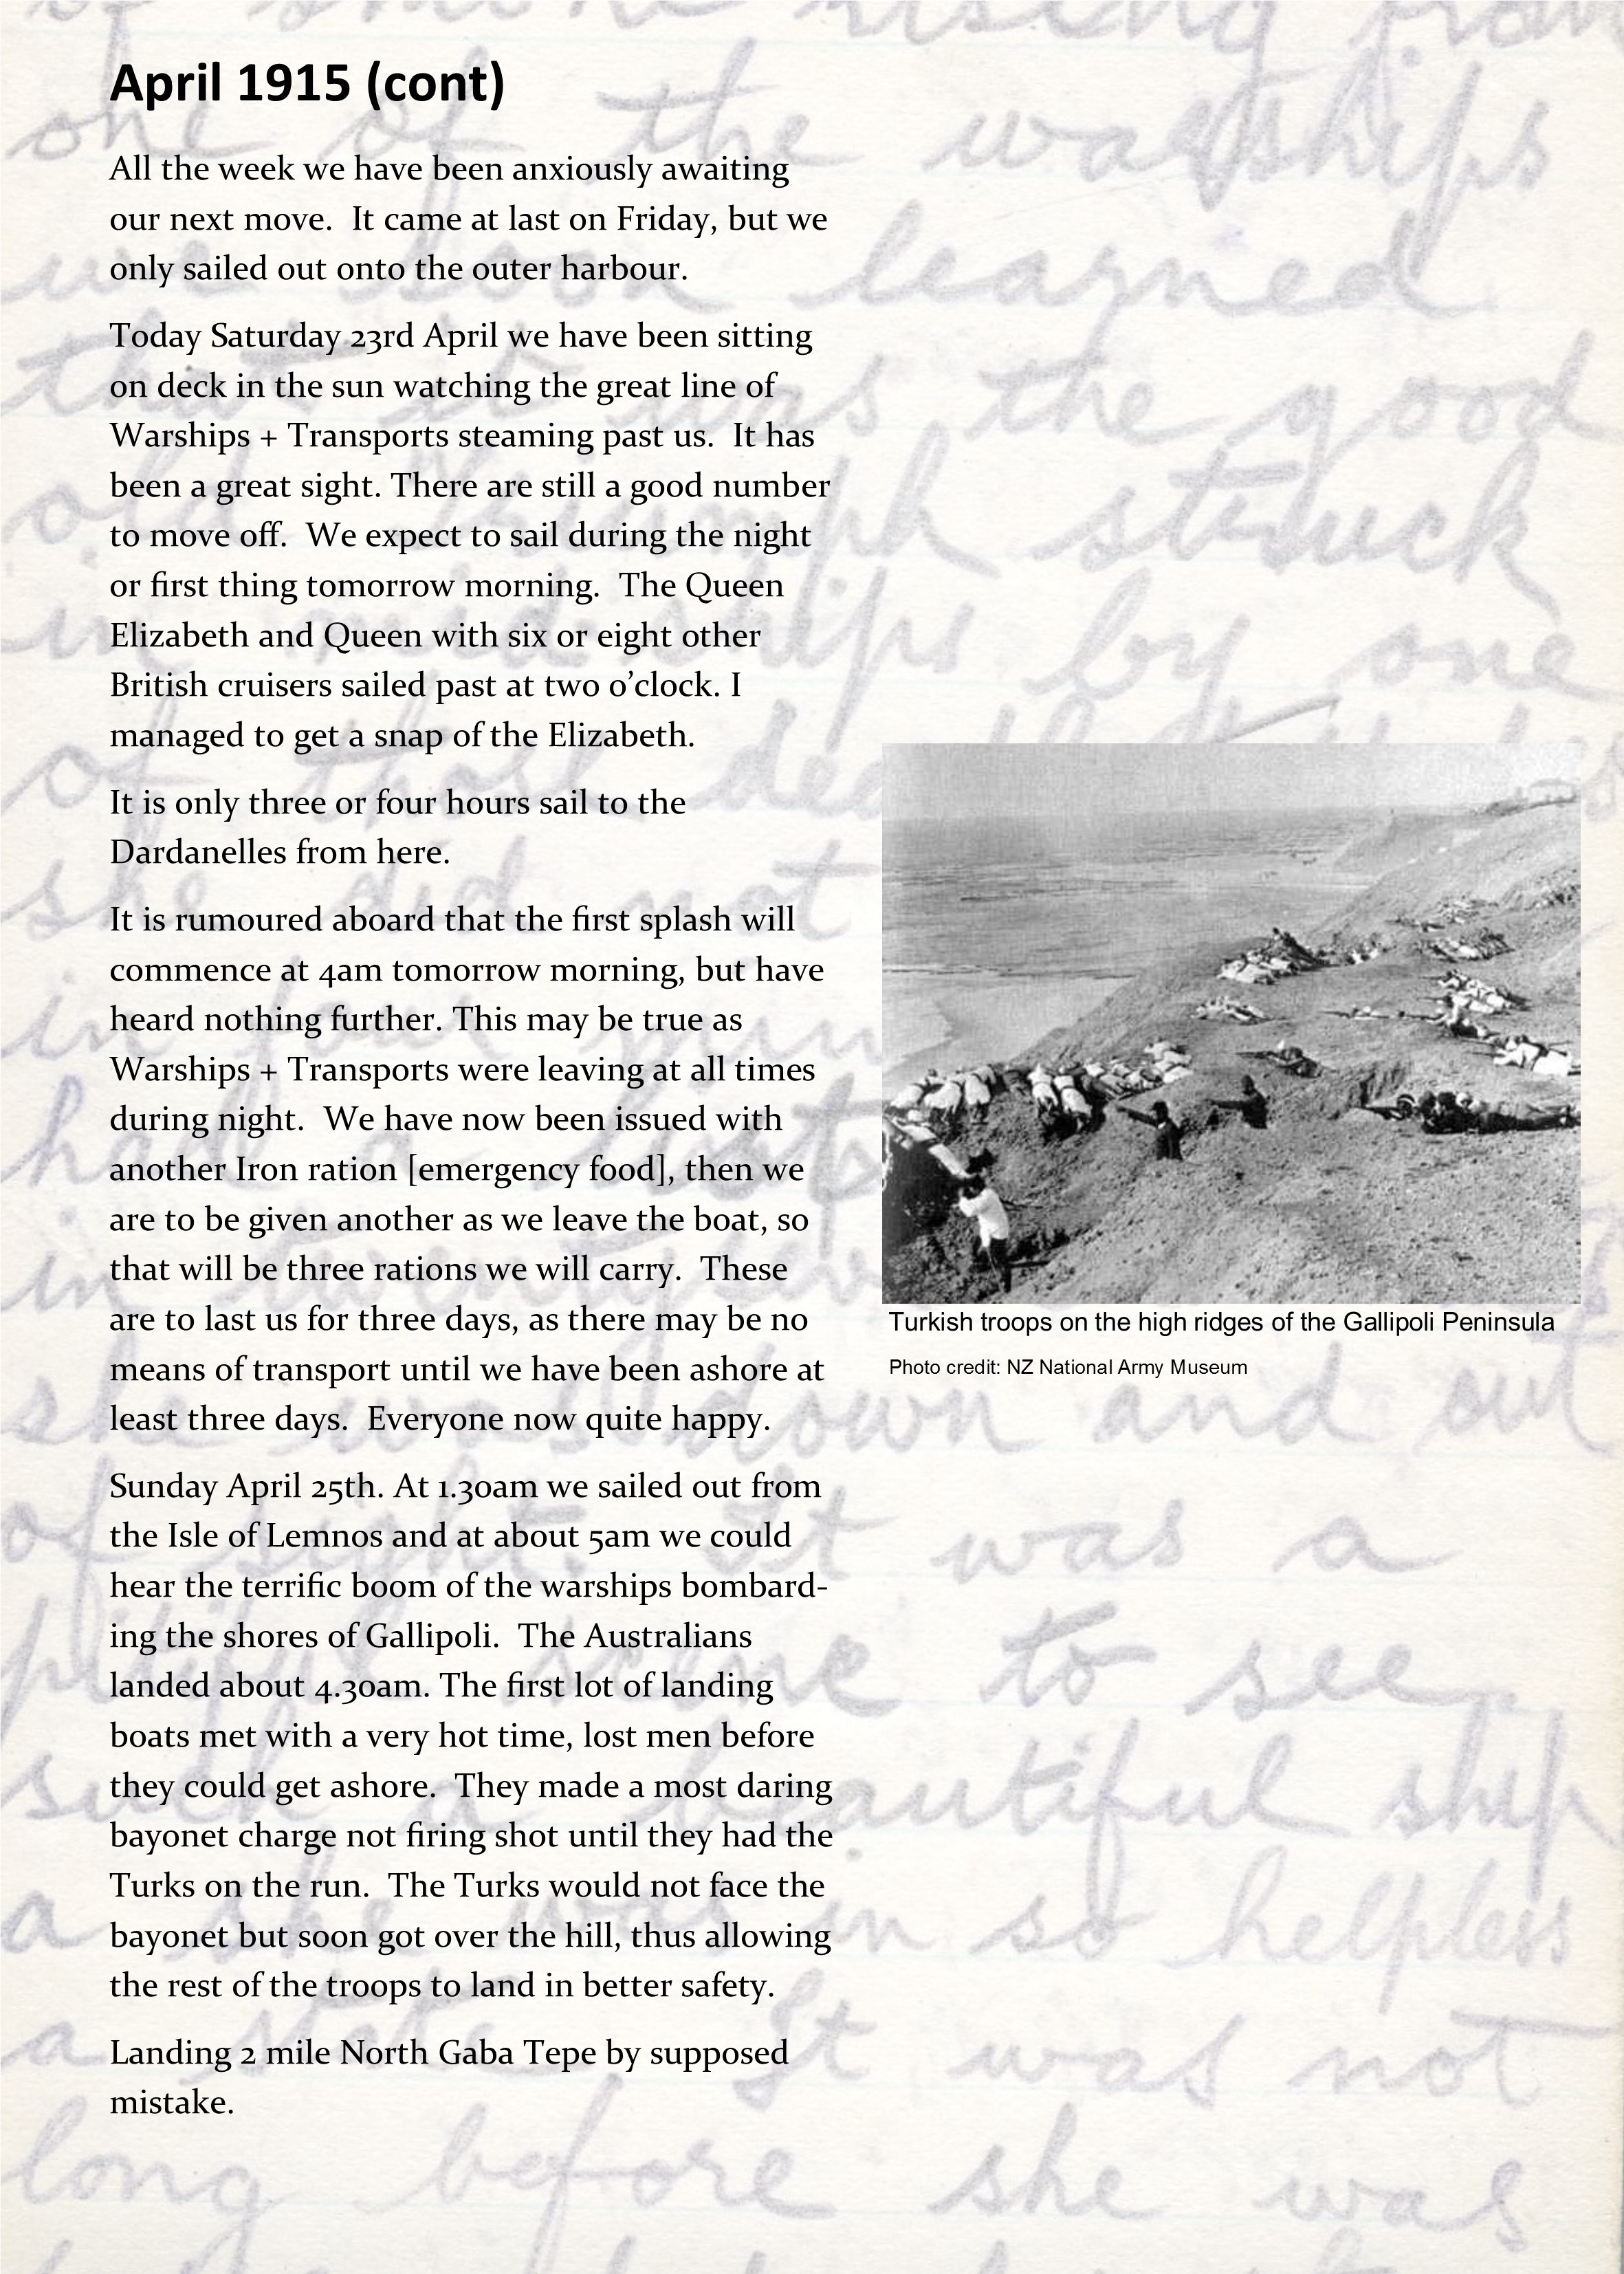 April 1915 (cont)
All the week we have been anxiously awaiting
our next move.  It came at last on Friday, but we
only sailed out onto the outer harbour.
Today Saturday 23rd April we have been sitting
on deck in the sun watching the great line of
Warships + Transports steaming past us.  It has
been a great sight. There are still a good number
to move off.  We expect to sail during the night
or first thing tomorrow morning.  The Queen
Elizabeth and Queen with six or eight other
British cruisers sailed past at two o’clock. I
managed to get a snap of the Elizabeth.
It is only three or four hours sail to the
Dardanelles from here.
It is rumoured aboard that the first splash will
commence at 4am tomorrow morning, but have
heard nothing further. This may be true as
Warships + Transports were leaving at all times
during night.  We have now been issued with
another Iron ration [emergency food], then we
are to be given another as we leave the boat, so
that will be three rations we will carry.  These
are to last us for three days, as there may be no
means of transport until we have been ashore at
least three days.  Everyone now quite happy.
Sunday April 25th. At 1.30am we sailed out from
the Isle of Lemnos and at about 5am we could
hear the terrific boom of the warships bombard-
ing the shores of Gallipoli.  The Australians
landed about 4.30am. The first lot of landing
boats met with a very hot time, lost men before
they could get ashore.  They made a most daring
bayonet charge not firing shot until they had the
Turks on the run.  The Turks would not face the
bayonet but soon got over the hill, thus allowing
the rest of the troops to land in better safety.
Landing 2 mile North Gaba Tepe by supposed
mistake.
Turkish troops on the high ridges of the Gallipoli Peninsula
Photo credit: NZ National Army Museum
one of the warships
we soon learned
that it was the good
old Triumph struck
in midships by one
of those
she did not
in four
in twenty
she was down and out
of sight. It was a
scene to see
such a beautiful ship
a she was in so helpless
a state It was not
long before she was